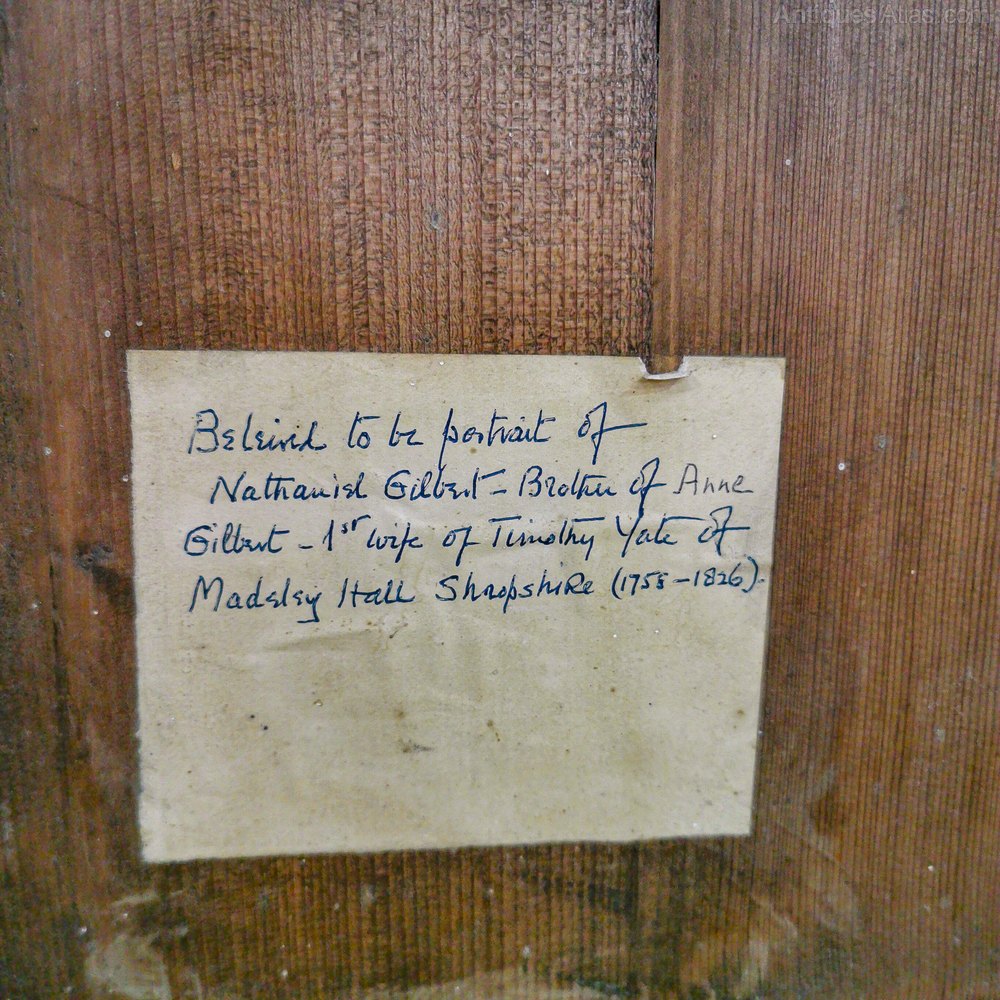 AntiquesAtlas.com
Beleived to be portrait of
Nathaniel Gilbert - Brother of Anne
Gilbert - 1st wife of Timothy Yate of
Madeley Hall Shropshire (1755-1826).